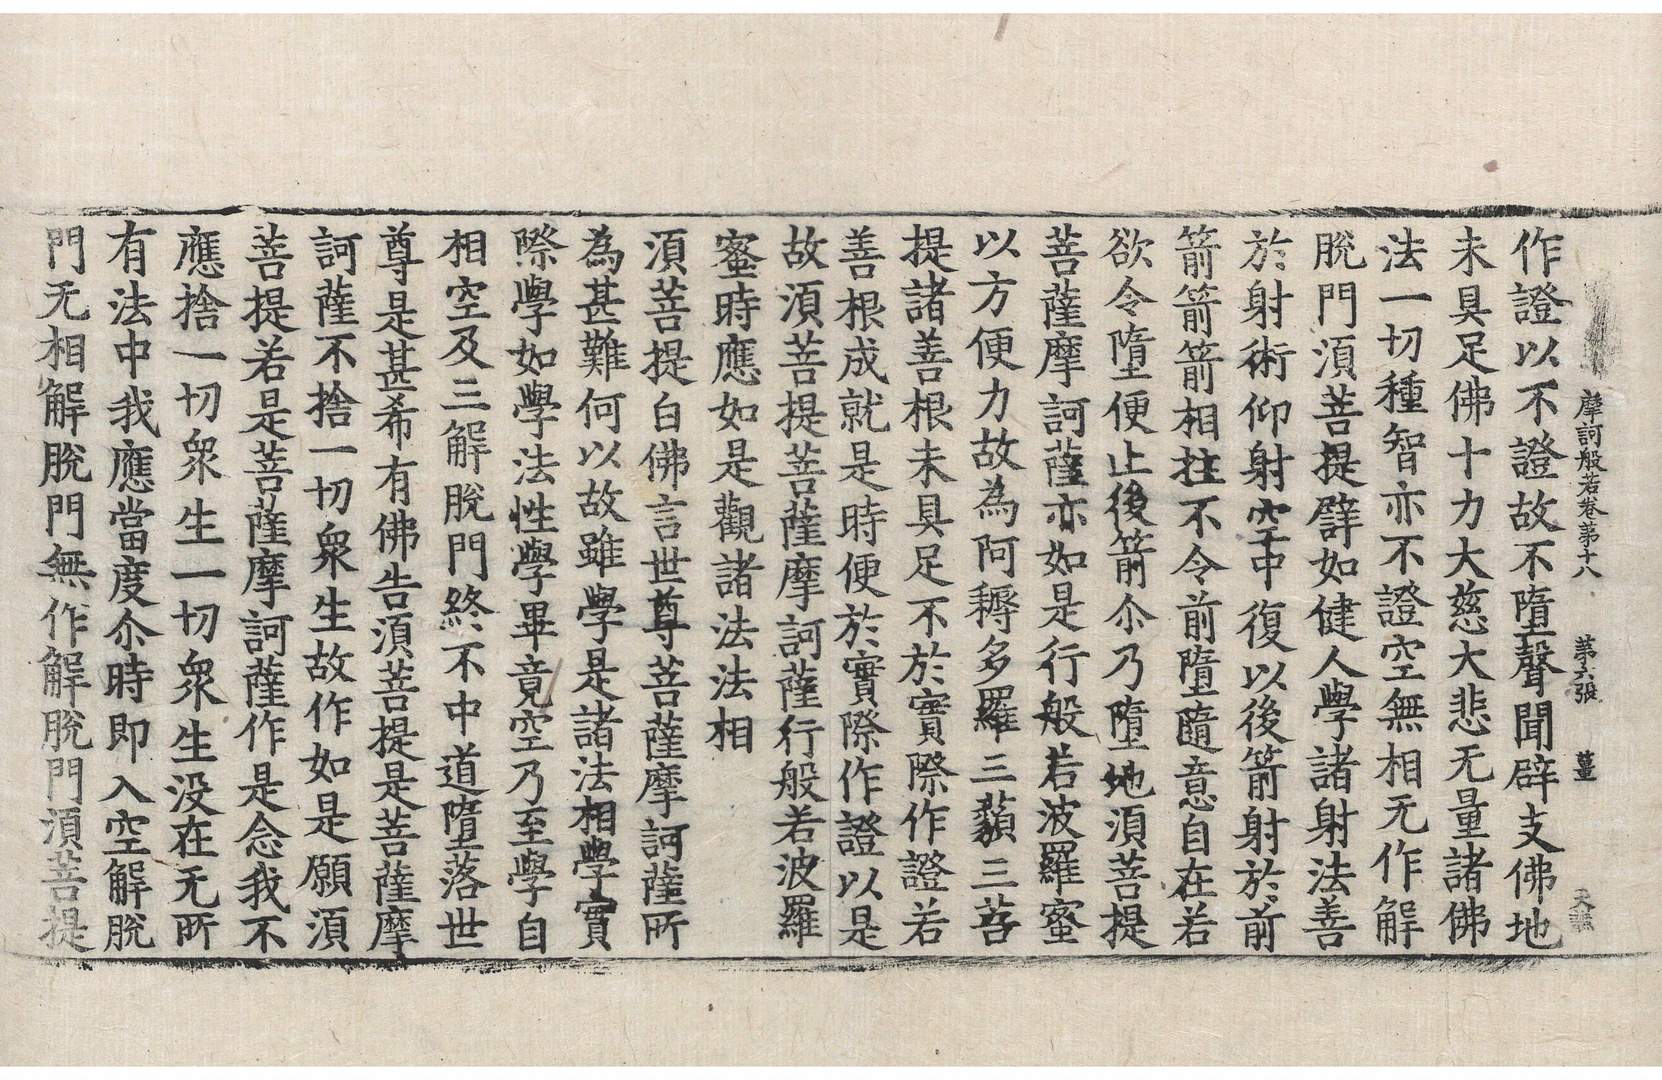 摩訶般若卷第十八　第六張　薑
作證以不證故不墮聲聞辟支佛地
未具足佛十力大慈大悲无量諸佛
法一切種智亦不證空無相无作解
脫門湏菩提譬如健人學諸射法善
於射術仰射空中復以後箭射於前
箭箭箭相拄不令前墮隨意自在若
欲令墮便止後箭尒乃墮地湏菩提
菩薩摩訶薩亦如是行般若波羅蜜
以方便力故為阿耨多羅三藐三菩
提諸善根未具足不於實際作證若
善根成就是時便於實際作證以是
故湏菩提菩薩摩訶薩行般若波羅
蜜時應如是觀諸法法相
湏菩提白佛言世尊菩薩摩訶薩所
為甚難何以故雖學是諸法相學實
際學如學法性學畢竟空乃至學自
相空及三解脫門終不中道墮落世
尊是甚希有佛告湏菩提是菩薩摩
訶薩不捨一切衆生故作如是願湏
菩提若是菩薩摩訶薩作是念我不
應捨一切衆生一切衆生没在无所
有法中我應當度尒時即入空解脫
門无相解脫門無作解脫門湏菩提